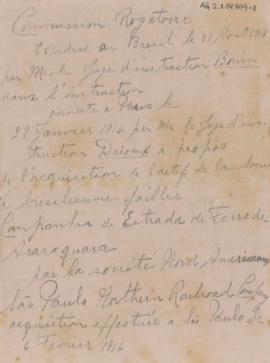 AG.2.1.64.409-1
Commission Rogatoire
Expédiée au Brésil le 31 Aout 1918
par Mr. le Juge d'instruction Bonin
dans l'instruction
ouverte à Paris le
29 Janvier 1916 par Mr le Juge d'ins-
truction Drioux à propos
de l'acquisition de l'actif de la Socié
té brésilienne faillie
Companhia de Estrada de Ferro de
Araraquara
par la société Nord Américaine
São Paulo Northern Railroad Company
acquisition effectuée a São Paulo le
6 Fevrier 1916